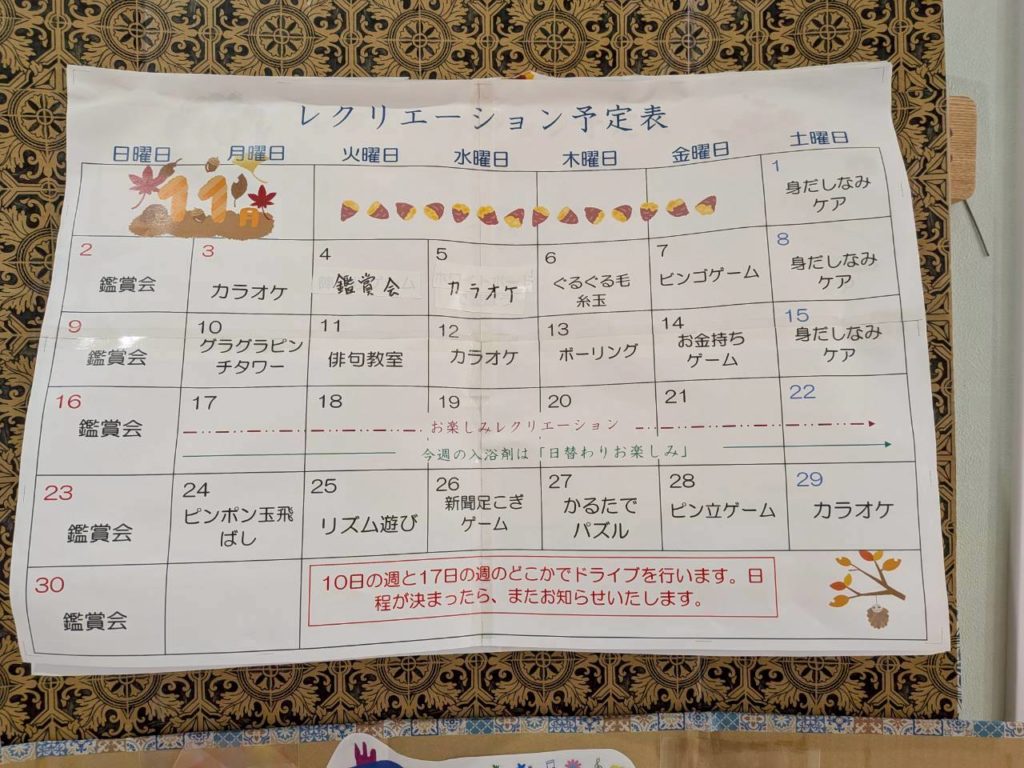 レクリエーション予定表
日曜日 月曜日 火曜日 水曜日 木曜日 金曜日 土曜日
11月
1
身だしなみ
ケア
2
鑑賞会
3
カラオケ
4
鑑賞会
5
カラオケ
6
ぐるぐる毛
糸玉
7
ビンゴゲーム
8
身だしなみ
ケア
9
鑑賞会
10
グラグラピン
チタワー
11
俳句教室
12
カラオケ
13
ボーリング
14
お金持ち
ゲーム
15
身だしなみ
ケア
16
鑑賞会
17 18 19 20 21 22
お楽しみレクリエーション
今週の入浴剤は「日替わりお楽しみ」
23
鑑賞会
24
ピンポン玉飛
ばし
25
リズム遊び
26
新聞足こぎ
ゲーム
27
かるたで
パズル
28
ピン立ゲーム
29
カラオケ
30
鑑賞会
10日の週と17日の週のどこかでドライブを行います。日
程が決まったら、またお知らせいたします。